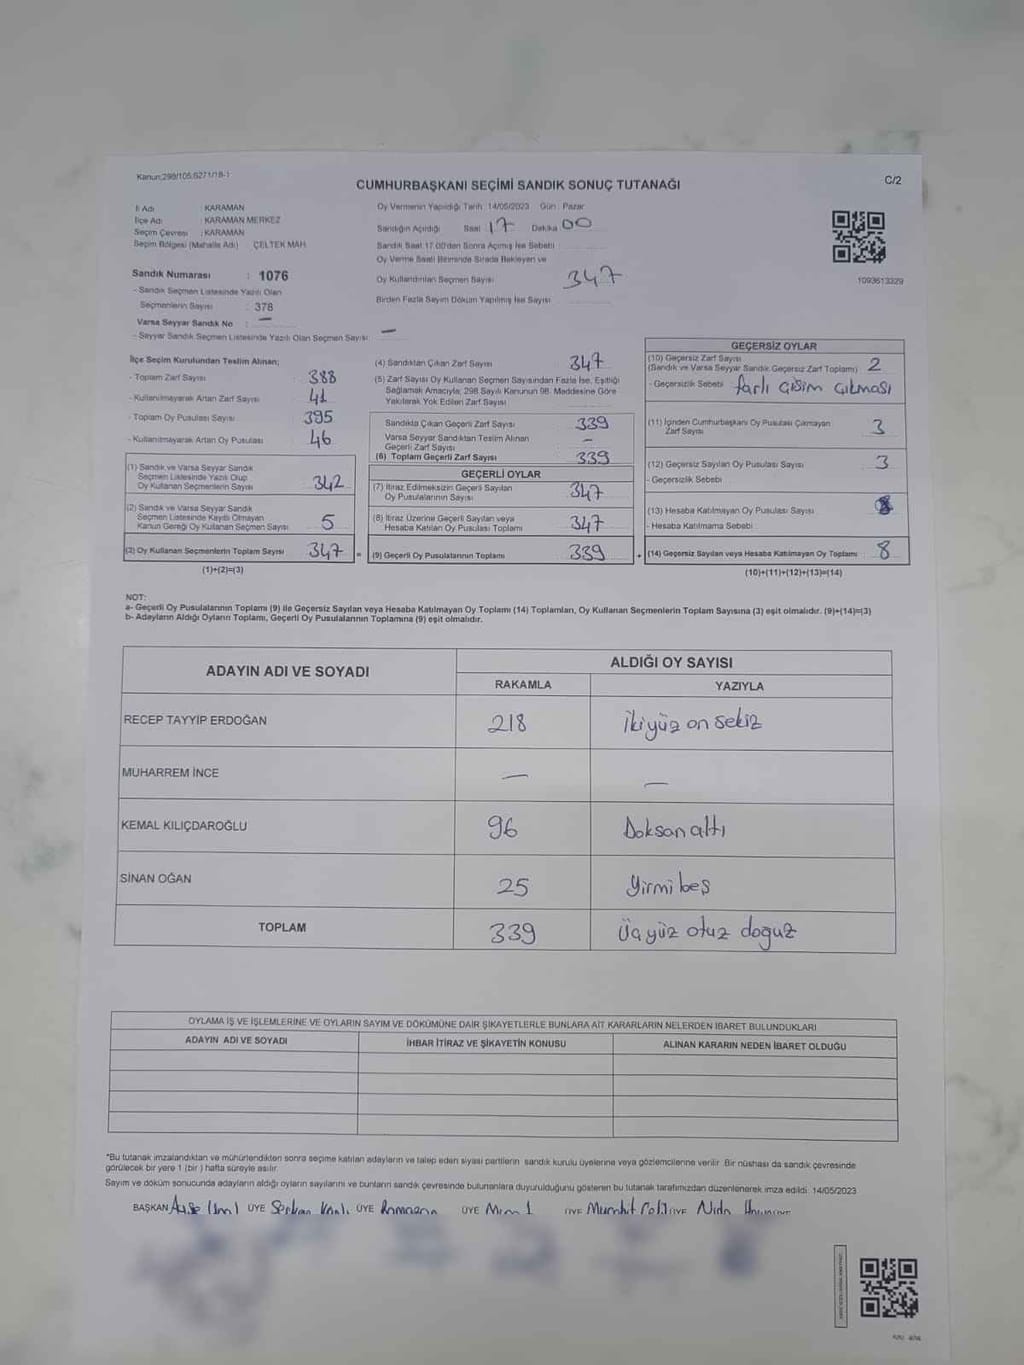 Kanun:298/105;6271/18-1
CUMHURBAŞKANI SEÇİMİ SANDIK SONUÇ TUTANAĞI
C/2
İl Adı : KARAMAN
İlçe Adı : KARAMAN MERKEZ
Seçim Çevresi : KARAMAN
Seçim Bölgesi (Mahalle Adı) ÇELTEK MAH.
Sandık Numarası : 1076
- Sandık Seçmen Listesinde Yazılı Olan
Seçmenlerin Sayısı : 378
Varsa Seyyar Sandık No : —
- Seyyar Sandık Seçmen Listesinde Yazılı Olan Seçmen Sayısı —
Oy Vermenin Yapıldığı Tarih :14/05/2023 Gün : Pazar
Sandığın Açıldığı Saat : 17 Dakika 00
Sandık Saat 17.00'den Sonra Açılmış İse Sebebi
Oy Verme Saati Bitiminde Sırada Bekleyen ve
Oy Kullandırılan Seçmen Sayısı 347
Birden Fazla Sayım Döküm Yapılmış İse Sayısı
1093613329
İlçe Seçim Kurulundan Teslim Alınan;
- Toplam Zarf Sayısı 388
- Kullanılmayarak Artan Zarf Sayısı 41
- Toplam Oy Pusulası Sayısı 395
- Kullanılmayarak Artan Oy Pusulası 46
(1) Sandık ve Varsa Seyyar Sandık
Seçmen Listesinde Yazılı Olup
Oy Kullanan Seçmenlerin Sayısı 342
(2) Sandık ve Varsa Seyyar Sandık
Seçmen Listesinde Kayıtlı Olmayan
Kanun Gereği Oy Kullanan Seçmen Sayısı 5
(3) Oy Kullanan Seçmenlerin Toplam Sayısı 347 =
(1)+(2)=(3)
(4) Sandıktan Çıkan Zarf Sayısı 347
(5) Zarf Sayısı Oy Kullanan Seçmen Sayısından Fazla İse, Eşitliği
Sağlamak Amacıyla; 298 Sayılı Kanunun 98. Maddesine Göre
Yakılarak Yok Edilen Zarf Sayısı
Sandıkta Çıkan Geçerli Zarf Sayısı 339
Varsa Seyyar Sandıktan Teslim Alınan
Geçerli Zarf Sayısı —
(6) Toplam Geçerli Zarf Sayısı 339
GEÇERLİ OYLAR
(7) İtiraz Edilmeksizin Geçerli Sayılan
Oy Pusulalarının Sayısı 347
(8) İtiraz Üzerine Geçerli Sayılan veya
Hesaba Katılan Oy Pusulası Toplamı 347
(9) Geçerli Oy Pusulalarının Toplamı 339 +
GEÇERSİZ OYLAR
(10) Geçersiz Zarf Sayısı
(Sandık ve Varsa Seyyar Sandık Geçersiz Zarf Toplamı) 2
- Geçersizlik Sebebi farlı Cisim Çıkması
(11) İçinden Cumhurbaşkanı Oy Pusulası Çıkmayan
Zarf Sayısı 3
(12) Geçersiz Sayılan Oy Pusulası Sayısı 3
- Geçersizlik Sebebi
(13) Hesaba Katılmayan Oy Pusulası Sayısı
- Hesaba Katılmama Sebebi
(14) Geçersiz Sayılan veya Hesaba Katılmayan Oy Toplamı 8
(10)+(11)+(12)+(13)=(14)
NOT:
a- Geçerli Oy Pusulalarının Toplamı (9) ile Geçersiz Sayılan veya Hesaba Katılmayan Oy Toplamı (14) Toplamları, Oy Kullanan Seçmenlerin Toplam Sayısına (3) eşit olmalıdır. (9)+(14)=(3)
b- Adayların Aldığı Oyların Toplamı, Geçerli Oy Pusulalarının Toplamına (9) eşit olmalıdır.
ADAYIN ADI VE SOYADI
ALDIĞI OY SAYISI
RAKAMLA YAZIYLA
RECEP TAYYİP ERDOĞAN 218 ikiyüz on sekiz
MUHARREM İNCE — —
KEMAL KILIÇDAROĞLU 96 Doksan altı
SİNAN OĞAN 25 Yirmi beş
TOPLAM 339 Üçyüz otuz doguz
OYLAMA İŞ VE İŞLEMLERİNE VE OYLARIN SAYIM VE DÖKÜMÜNE DAİR ŞİKAYETLERLE BUNLARA AİT KARARLARIN NELERDEN İBARET BULUNDUKLARI
ADAYIN ADI VE SOYADI İHBAR İTİRAZ VE ŞİKAYETİN KONUSU ALINAN KARARIN NEDEN İBARET OLDUĞU
*Bu tutanak imzalandıktan ve mühürlendikten sonra seçime katılan adayların ve talep eden siyasi partilerin sandık kurulu üyelerine veya gözlemcilerine verilir. Bir nüshası da sandık çevresinde
görülecek bir yere 1 (bir ) hafta süreyle asılır.
Sayım ve döküm sonucunda adayların aldığı oyların sayılarını ve bunların sandık çevresinde bulunanlara duyurulduğunu gösteren bu tutanak tarafımızdan düzenlenerek imza edildi. 14/05/2023
BAŞKAN Ayşe ÜYE Serkan ÜYE Ramazan ÜYE ÜYE ÜYE Nida